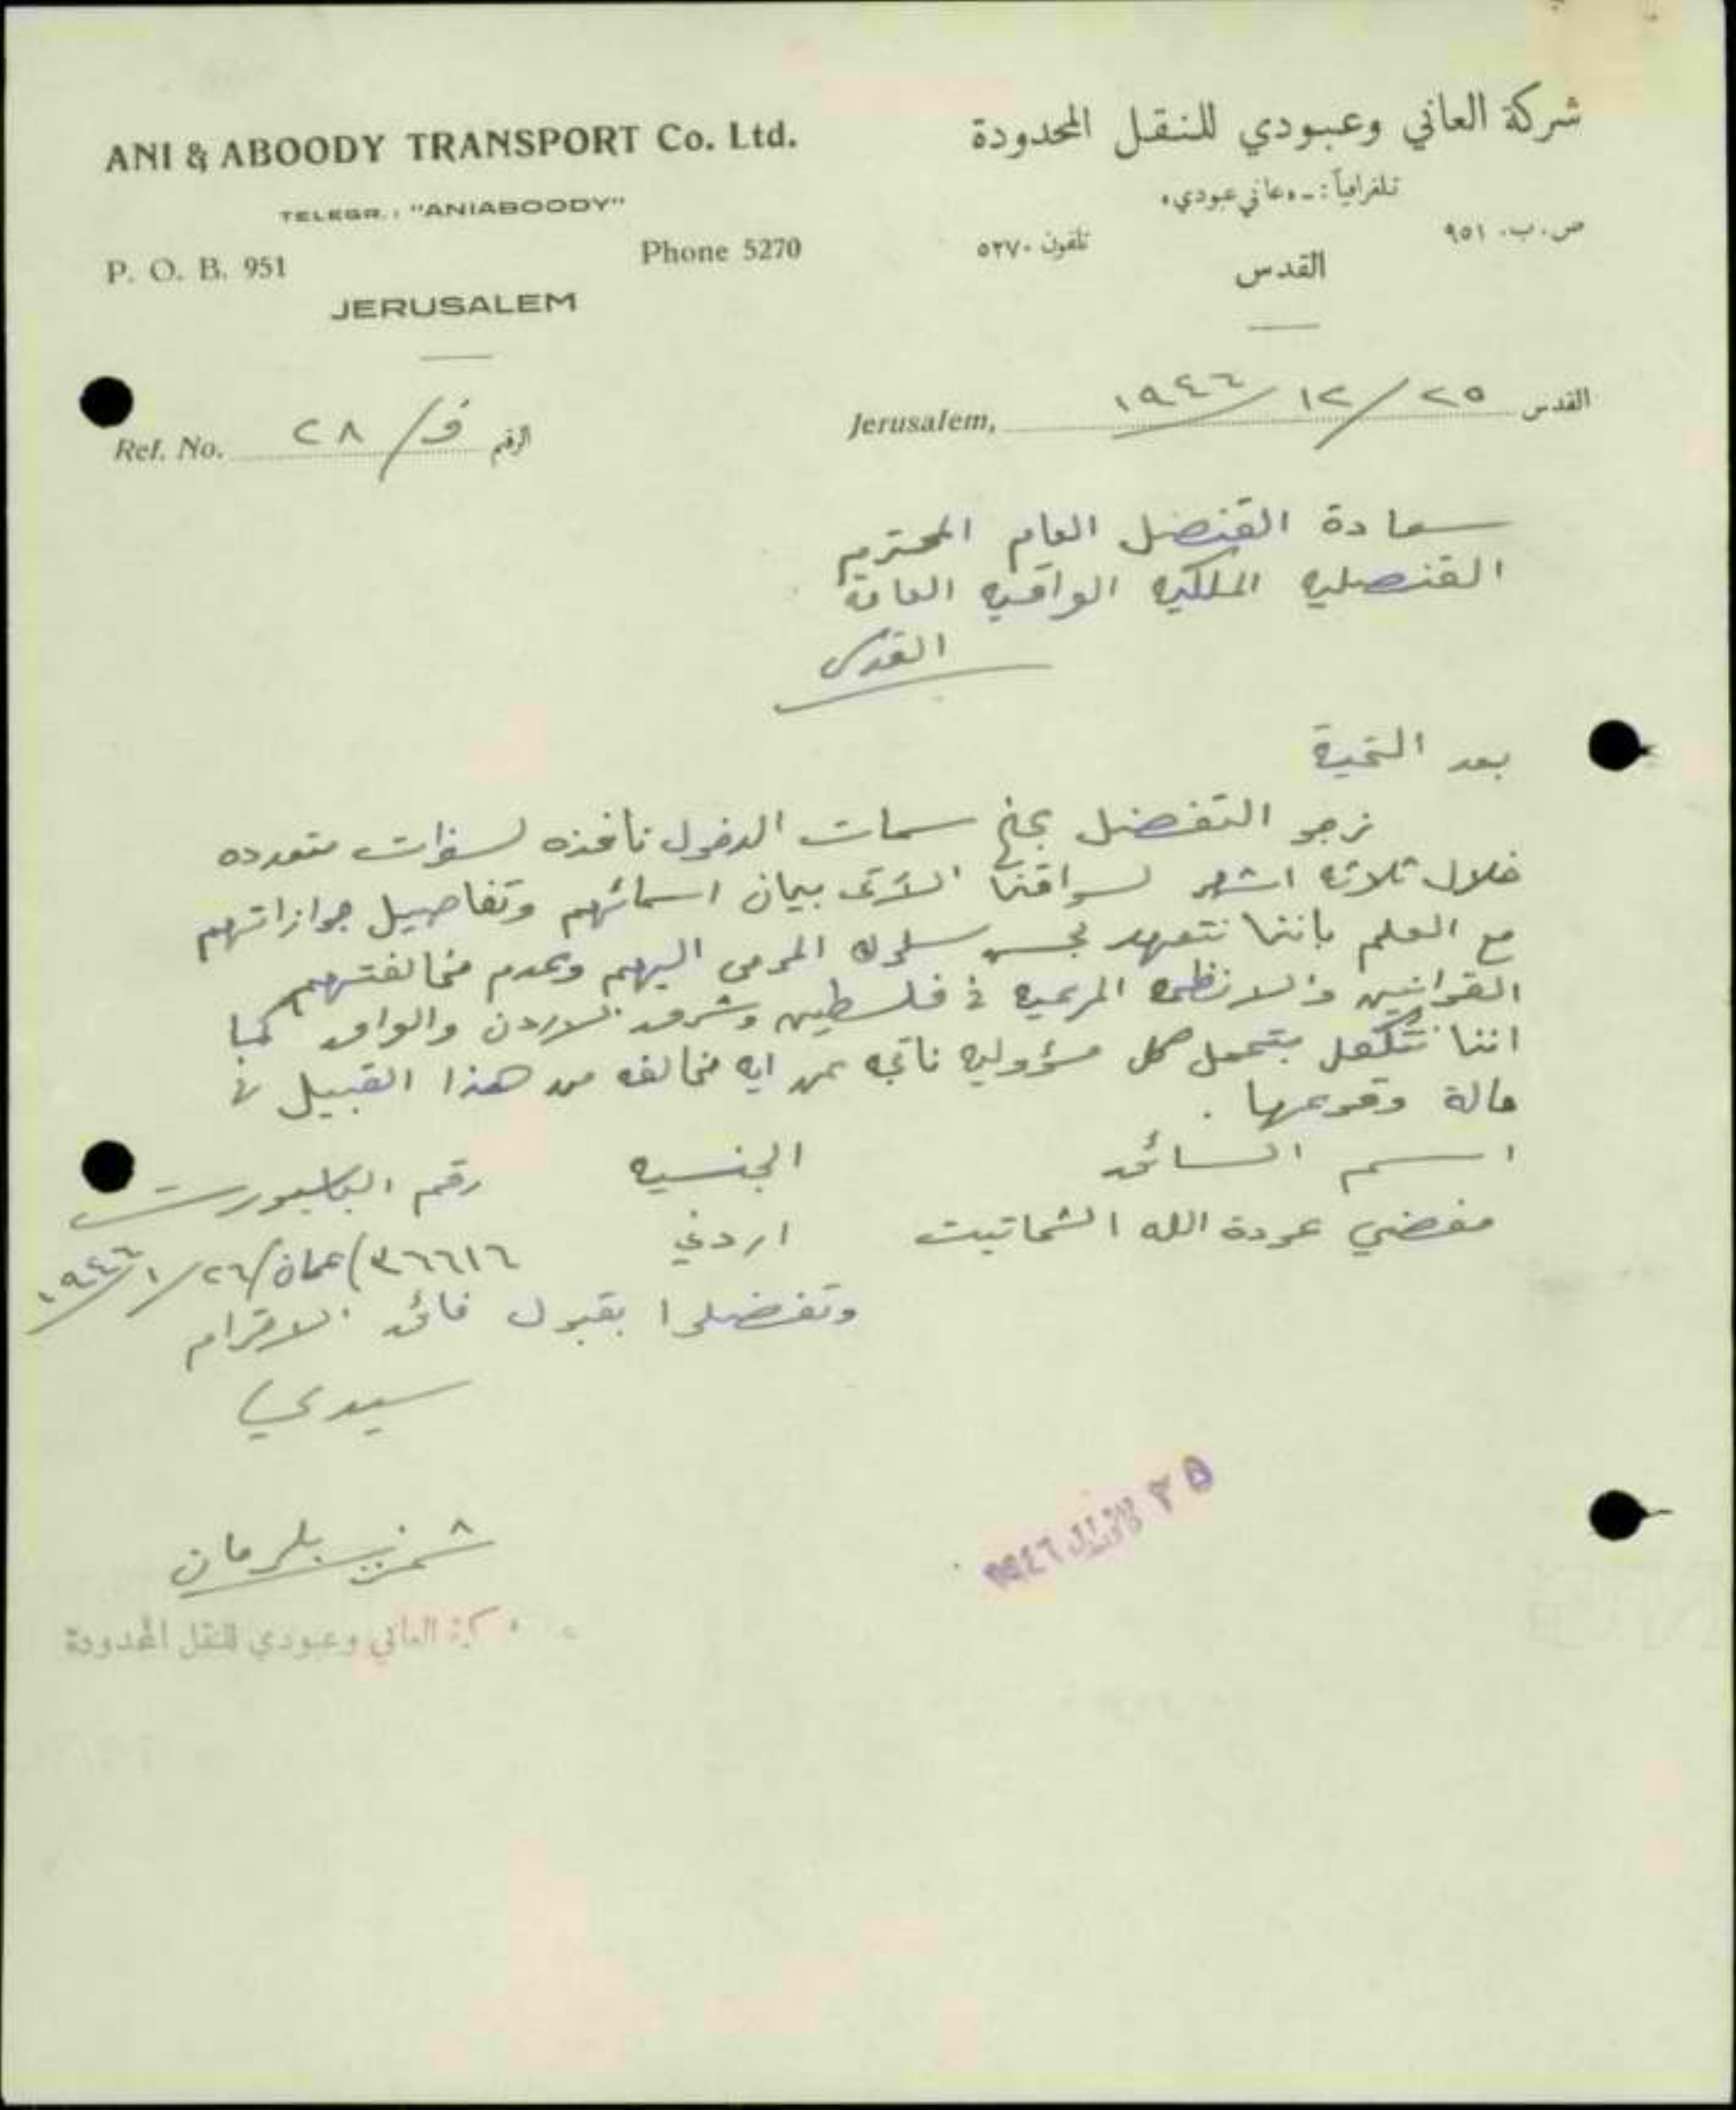 ANI & ABOODY TRANSPORT Co. Ltd.
TELEGR.: "ANIABOODY"
P. O. B. 951 Phone 5270
JERUSALEM
شركة العاني وعبودي للنقل المحدودة
تلغرافياً: ـ «عاني عبودي»
ص. ب. ٩٥١ تلفون ٥٢٧٠
القدس
Ref. No. ٢٨ / ف الرقم
Jerusalem, ٢٥ / ١٢ / ١٩٤٦ القدس
سعادة القنصل العام المحترم
القنصلية الملكية العراقية العامة
القدس
بعد التحية
نرجو التفضل بمنح سمات الدخول نافذه لسفرات متعدده
خلال ثلاثة اشهر لسواقنا الآتي بيان اسمائهم وتفاصيل جوازاتهم
مع العلم باننا نتعهد بحسن سلوك المومى اليهم وعدم مخالفتهم
القوانين والانظمه المرعيه في فلسطين وشرق الاردن والعراق كما
اننا نتكفل بتحمل كل مسؤوليه ناتجه عن ايه مخالفه من هذا القبيل في
حالة وقوعها .
اسم السائق الجنسيه رقم الباسبورت
مفضي عودة الله الشماتيت اردني ٣٦٦١٦ / عمان / ٢٦ / ١ / ١٩٤٦
وتفضلوا بقبول فائق الاحترام
سيدي
٢٥ ١٩٤٦
شركة العاني وعبودي للنقل المحدودة